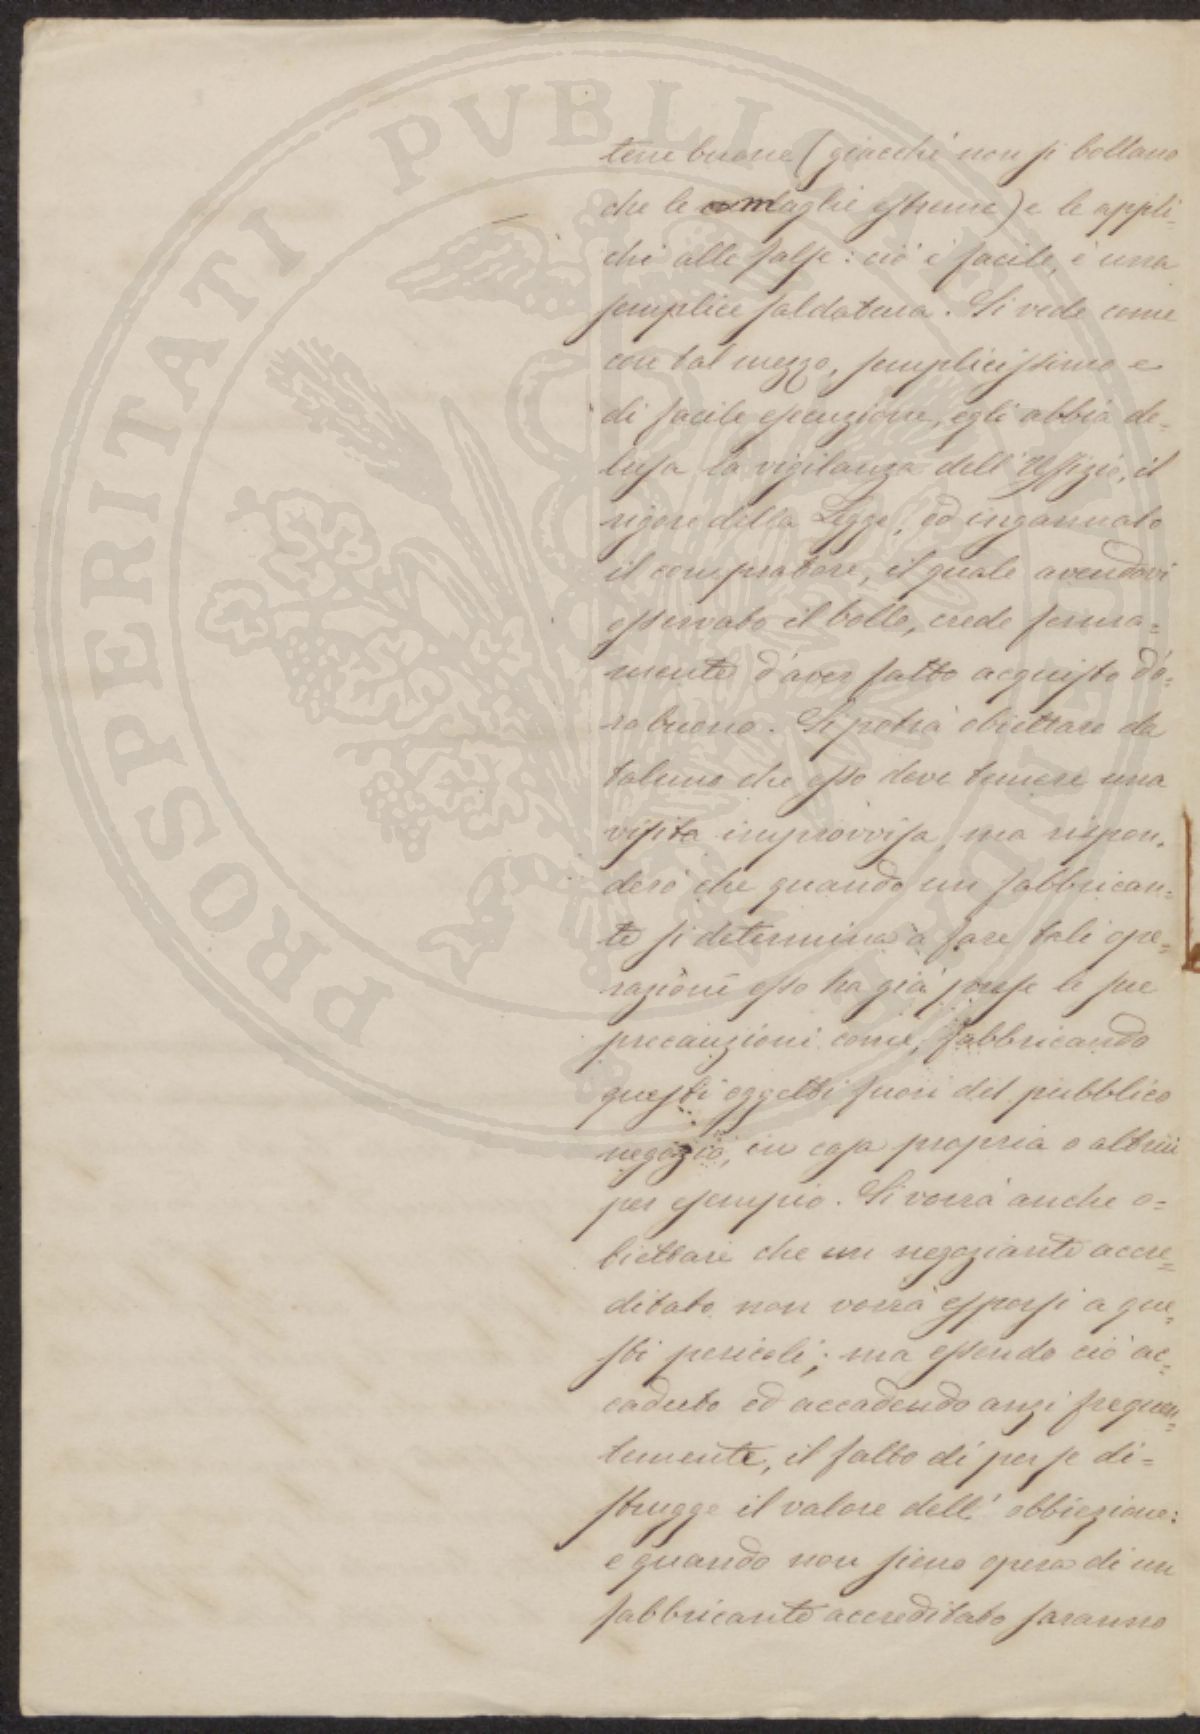 PROSPERITATI PVBLICAE AVGENDAE
tene buone (giacchè non si bollano
che le maglie estreme) e le appli=
chi alle false: ciò è facile, è una
semplice saldatura. Si vede come
con tal mezzo, semplicissimo e
di facile esecuzione, egli abbia de=
lusa la vigilanza dell'Uffizio, il
rigore della Legge, ed ingannato
il compratore, il quale avendovi
osservato il bollo, crede ferma=
mente d'aver fatto acquisto d'o=
ro buono. Si potrà obiettare da
taluno che esso deve temere una
visita improvvisa, ma rispon=
derò che quando un fabbrican=
te si determina a fare tali ope=
razioni esso ha già prese le sue
precauzioni come, fabbricando
questi oggetti fuori del pubblico
negozio, in casa propria o altrui
per esempio. Si vorrà anche o=
biettare che un negoziante accre=
ditato non vorrà esporsi a que=
sti pericoli; ma essendo ciò ac=
caduto ed accadendo anzi frequen=
temente, il fatto di per se di=
strugge il valore dell'obbiezione:
e quando non sieno opera di un
fabbricante accreditato saranno